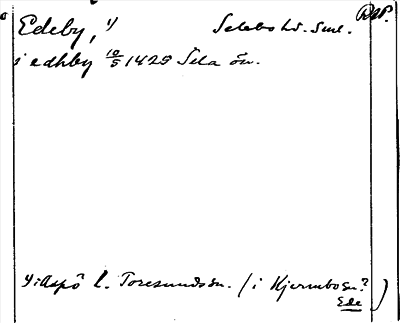 Edeby, 1) Selebo hd. Sml. DMP.
i edhby 10/5 1429 Sela ön.
1) i Aspö l. Toresunds sn. (i Kjernbo sn.?
Ede )